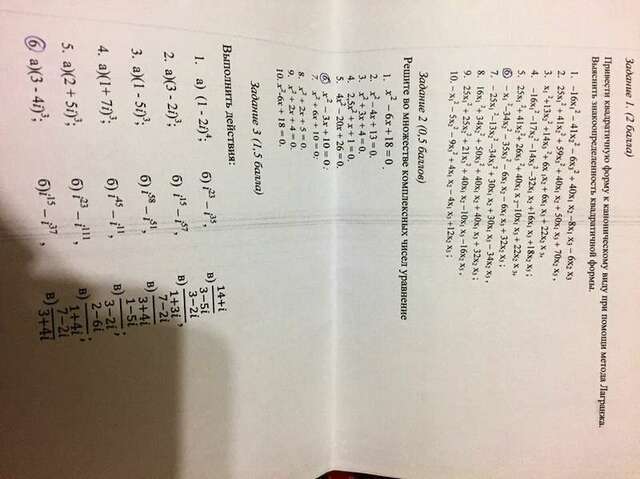 Задание 1. (2 балла)
Привести квадратичную форму к каноническому виду при помощи метода Лагранжа.
Выяснить знакоопределенность квадратичной формы.
1. -16x₁² -41x₂² - 6x₃² + 40x₁ x₂ -8x₁ x₃ - 6x₂ x₃
2. 25x₁² +41x₂² + 59x₃² + 40x₁ x₂ + 50x₁ x₃ + 70x₂ x₃ ,
3. x₁² +13x₂² +34x₃² + 6x₁ x₂ + 6x₁ x₃ + 22x₂ x₃,
4. -16x₁² -17x₂² -14x₃² -32x₁ x₂ +16x₁ x₃ +18x₂ x₃ ;
5. 25x₁² +41x₂² +26x₃² + 40x₁ x₂ -10x₁ x₃ + 22x₂ x₃,
6. - x₁² -34x₂² - 35x₃² - 6x₁ x₂ - 6x₁ x₃ + 32x₂ x₃ ;
7. -25x₁² -13x₂² -34x₃² + 30x₁ x₂ + 30x₁ x₃ - 34x₂ x₃,
8. 16x₁² + 34x₂² + 50x₃² + 40x₁ x₂ + 40x₁ x₃ + 32x₂ x₃ ;
9. 25x₁² + 25x₂² + 21x₃² + 40x₁ x₂ -10x₁ x₃ -16x₂ x₃ ,
10. - x₁² - 5x₂² - 9x₃² + 4x₁ x₂ - 4x₁ x₃ +12x₂ x₃ ;
Задание 2 (0,5 баллов)
Решите во множестве комплексных чисел уравнение
1. x² - 6x + 18 = 0
2. x² - 4x + 13 = 0.
3. x² + 3x + 4 = 0.
4. 2,5x² + x + 1 = 0.
5. 4x² - 20x + 26 = 0.
6. x² - 3x + 10 = 0
7. x² + 6x + 10 = 0
8. x² + 2x + 5 = 0.
9. x² + 2x + 4 = 0.
10. x² - 6x + 18 = 0.
Задание 3 (1,5 балла)
Выполнить действия:
1. а) (1 - 2i)⁴; б) i²³ − i³⁵, в) 14+i / 3−5i
2. а)(3 - 2i)³; б) i¹⁵ − i⁵⁷, в) 1+3i / 3−2i ,
3. а)(1 - 5i)³; б) i⁵⁸ − i⁵¹ в) 3+4i / 7−2i
4. а)(1+ 7i)³; б) i⁴⁵ − i¹¹, в) 3−2i / 1−5i
5. а)(2 + 5i)³; б) i²³ − i¹¹¹, в) 1+4i / 2−6i
6. а)(3 - 4i)³; б) i¹⁵ − i³⁷ , в) 7−2i / 3+4i